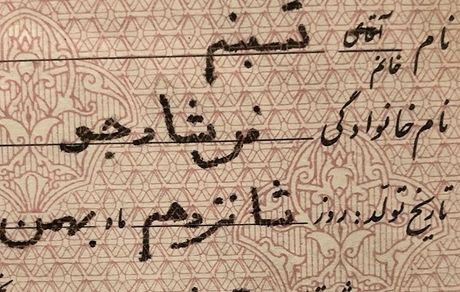 نام آقای شبنم
خانم
نام خانوادگی فرشادجو
تاریخ تولد: روز شانزدهم ماه بهمن